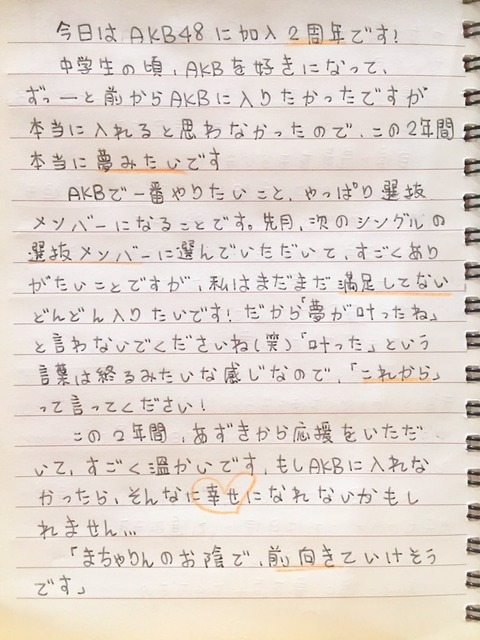 今日はAKB48に加入2周年です!
中学生の頃、AKBを好きになって、
ずっーと前からAKBに入りたかったですが
本当に入れると思わなかったので、この2年間
本当に夢みたいです
AKBで一番やりたいこと、やっぱり選抜
メンバーになることです。先月、次のシングルの
選抜メンバーに選んでいただいて、すごくあり
がたいことですが、私はまだまだ満足してない
どんどん入りたいです!だから「夢が叶ったね」
と言わないでくださいね(笑)「叶った」という
言葉は終るみたいな感じなので、「これから」
って言ってください!
この2年間、あずきから応援をいただ
いて、すごく温かいです、もしAKBに入れな
かったら、そんなに幸せになれないかもし
れません...
「まちゃりんのお陰で、前向きていけそう
です」